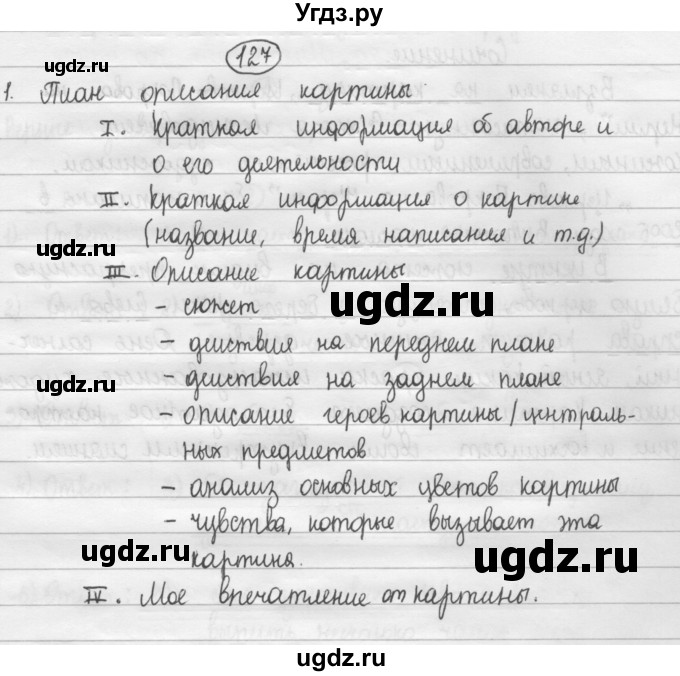 Угдз.ру
127
1. План описания картины
I. Краткая информация об авторе и
о его деятельности
II. Краткая информация о картине
(название, время написания и т.д.)
III. Описание картины
- сюжет
- действия на переднем плане
действия на заднем плане
- описание героев картины/централь-
ных предметов
- анализ основных цветов картины
- чувства, которые вызывает эта
картина.
IV. Мое впечатление от картины.
ugdz.ru
ugdz.ru
ugdz.ru
ugdz.ru
ugdz.ru
ugdz.ru
ugdz.ru
ugdz.ru
ugdz.ru
ugdz.ru